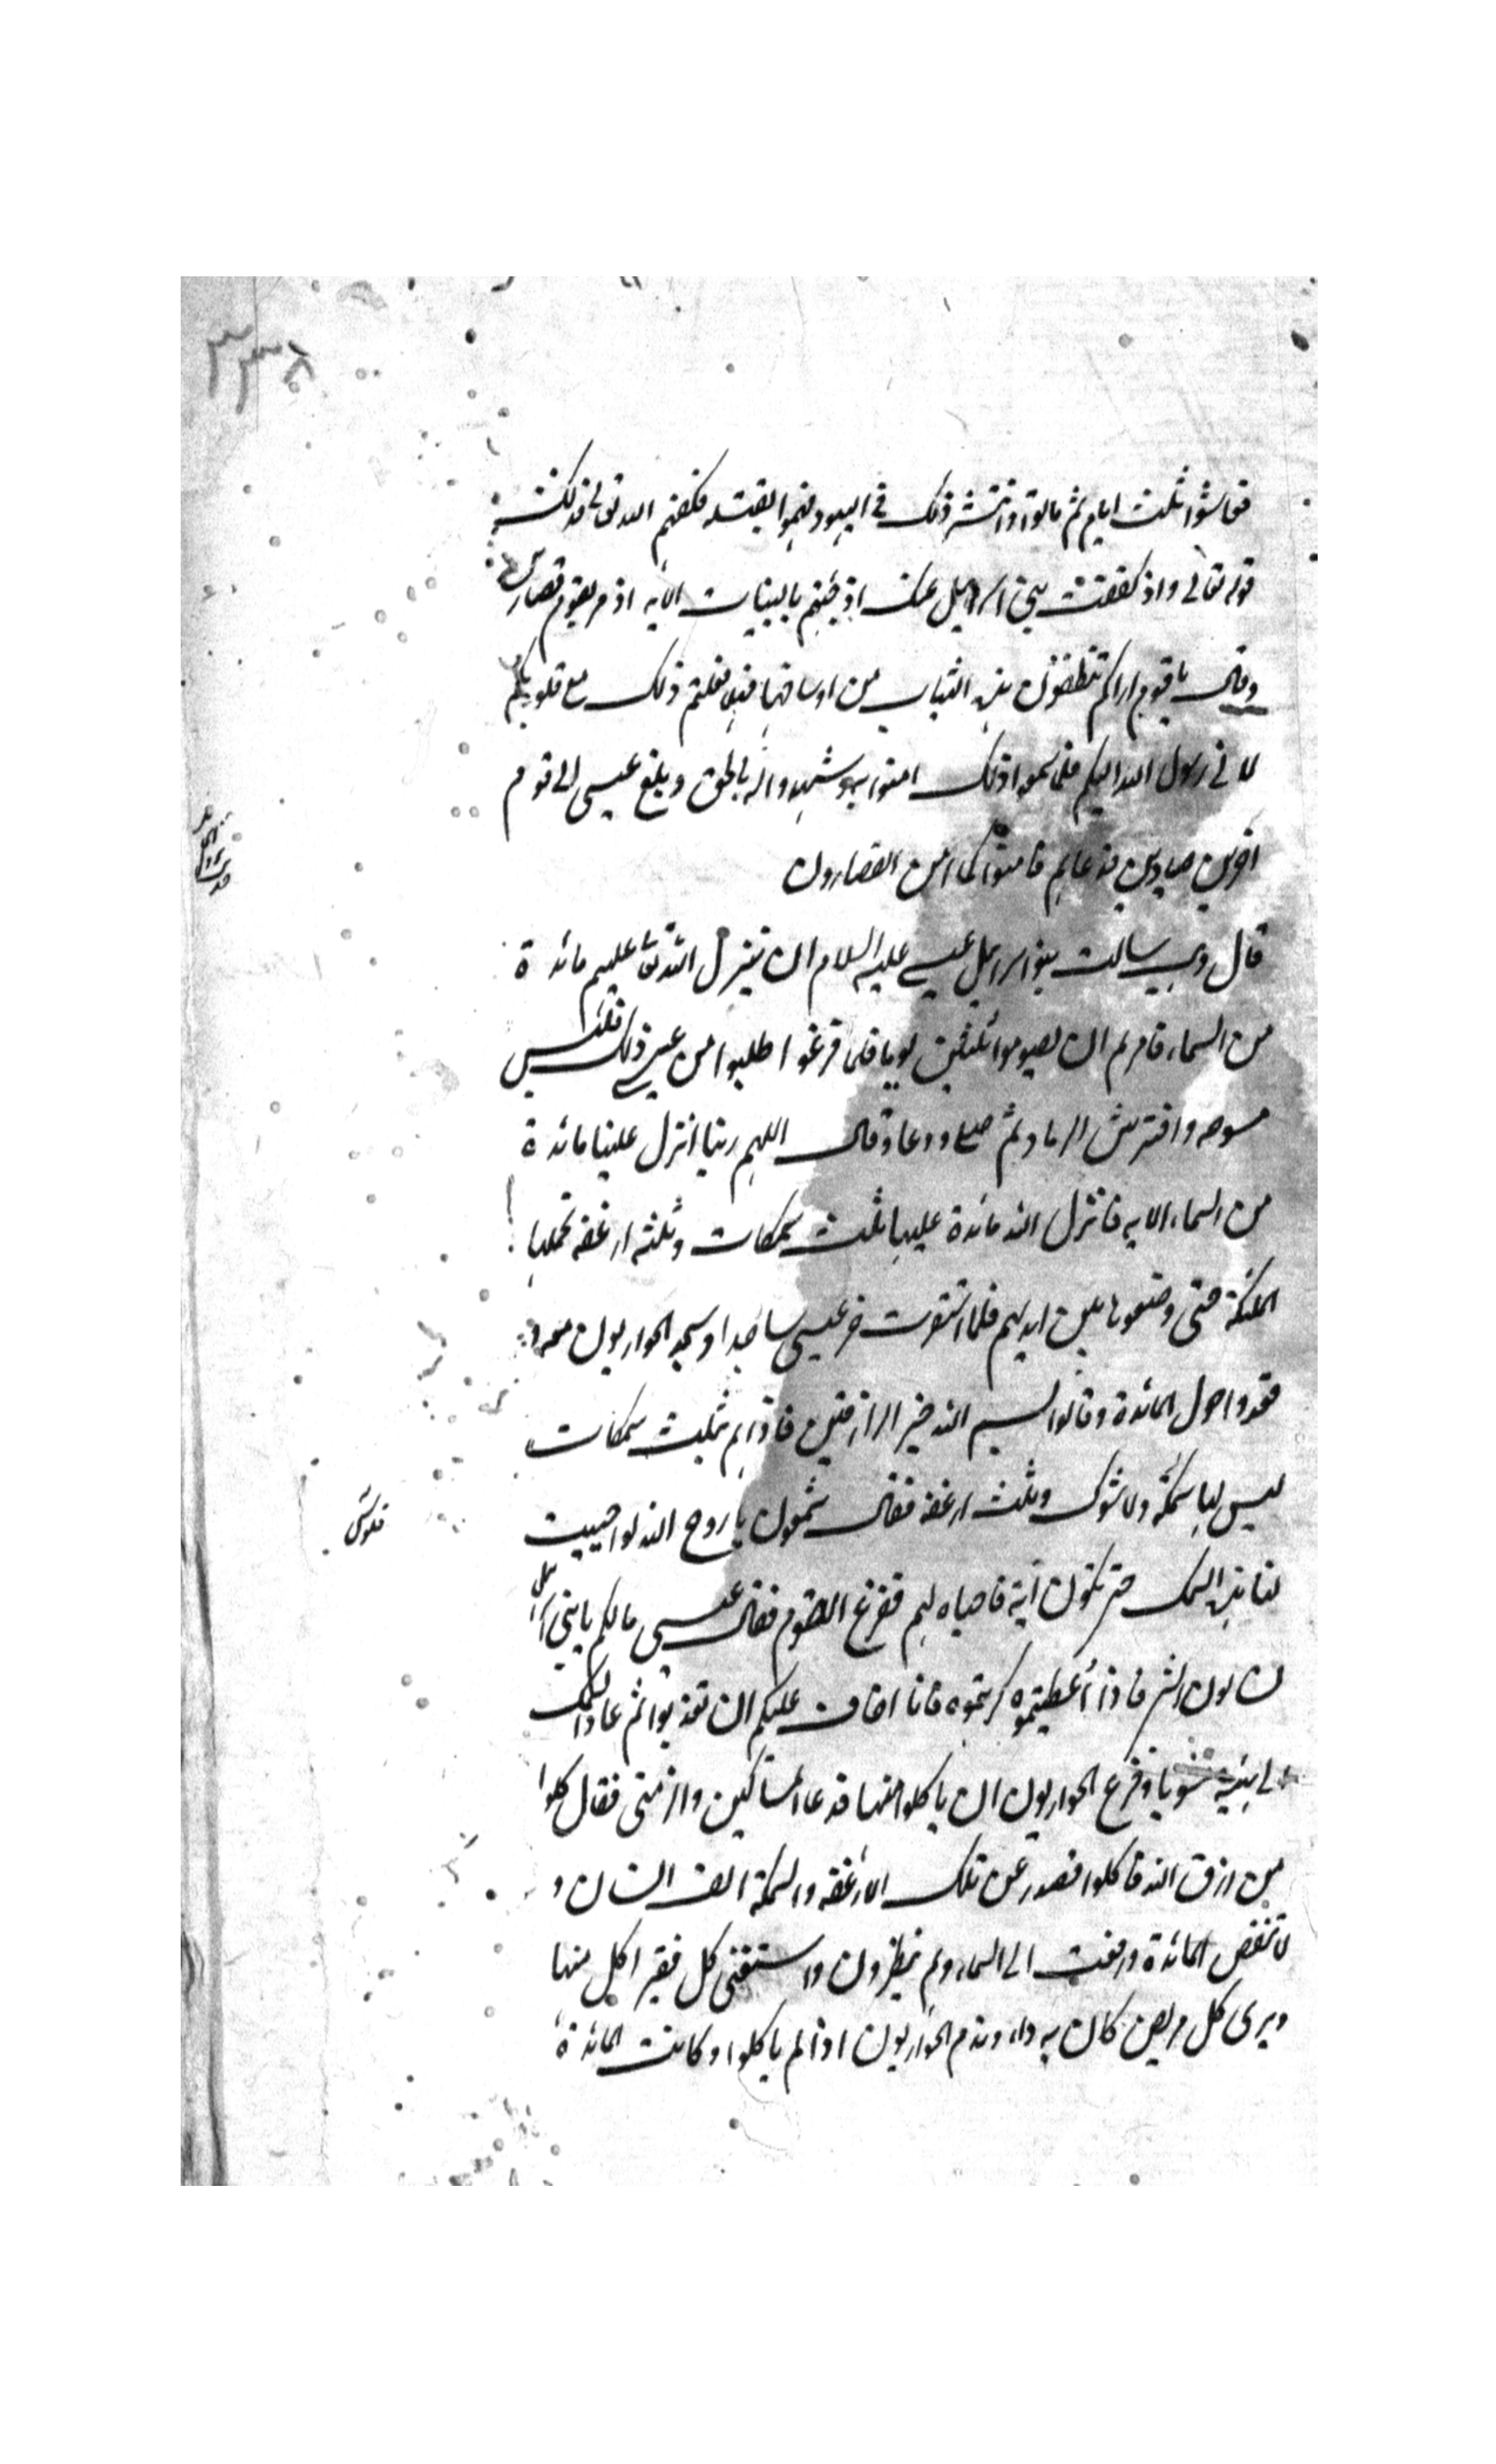 ٣٣٨
فعاشوا ثلث ايام ثم ماتوا وانتشر ذلك في اليهود فهموا بقتله فكفهم الله تعالى فذلك
قوله تعالى واذ كففت بني اسرائيل عنك اذ جئتهم بالبينات الايه اذ مر بقوم قصارين
وقال يا قوم اراكم تنظفون هذه الثياب من اوساخها فهلا فعلتم ذلك مع قلوبكم
لاني رسول الله اليكم فلما سمعوا ذلك امنوا به وشهدوا انه بالحق وبلغ عيسى الى قوم
اخرين صيادين فدعاهم فامنوا كما امن القصارون
قال وهب سالت بنو اسرائيل عيسى عليه السلام ان ينزل الله تعا عليهم مائدة
من السماء فامرهم ان يصوموا ثلثين يوما فلما فرغوا طلبوا من عيسى ذلك فلبس
مسوحه وافترش الرماد ثم صلى ودعا وقال اللهم ربنا انزل علينا مائدة
من السماء الايه فانزل الله مائدة عليها ثلث سمكات وثلثه ارغفه تحملها
الملئكة حتى وضعوها بين ايديهم فلما استقرت خر عيسى ساجدا وسجد الحواريون معه و
قعدوا حول المائدة وقالوا بسم الله خير الرازقين فاذا هم بثلث سمكات
ليس لها ولا شوك وثلث ارغفه فقال شمعون يا روح الله لو احييت
فلوس
لنا هذه السمك حتى تكون آية فاحياه لهم ففزع القوم فقال عيسى مالكم يا بني اسرائيل
تسالون الشر فاذا أعطيتموه كرهتموه فانا اخاف عليكم ان تعذبوا ثم عاد السمك
الى هيئته مشويا وفزع الحواريون ان ياكلوا منها فدعا المساكين والزمنى فقال كلوا
من رزق الله فاكلوا فصدر عن تلك الارغفه والسمكة الف انسان و
لا تنقص المائدة ورفعت الى السماء وهم ينظرون واستغنى كل فقير اكل منها
وبرى كل مريض كان به داء وندم الحواريون اذ لم ياكلوا وكانت المائدة